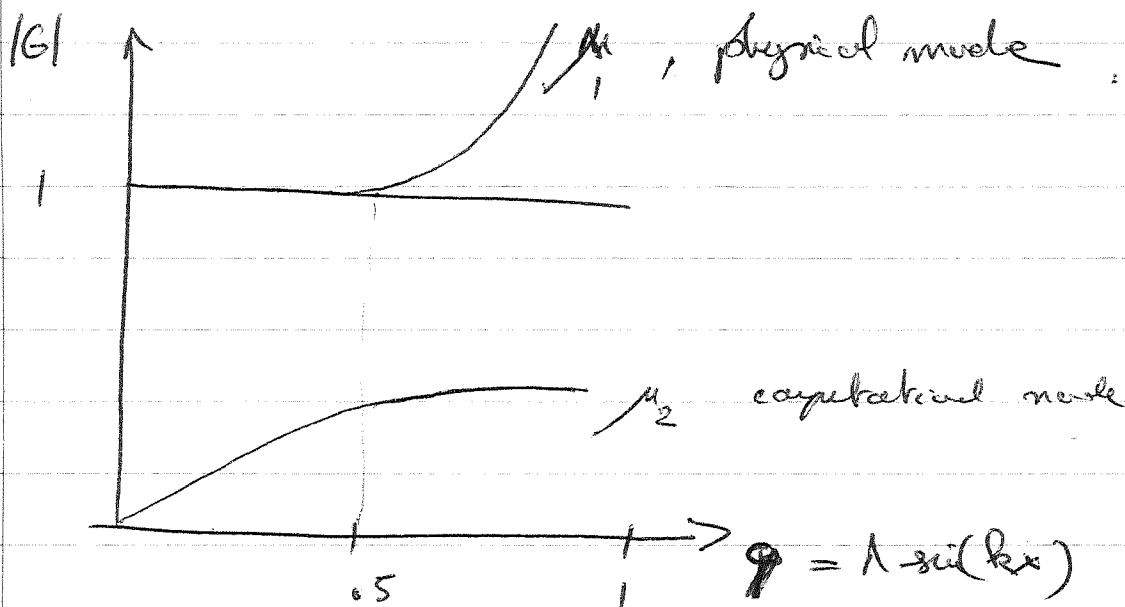 |G|
μ1, physical mode.
1
μ2 computational mode
.5 1 = λ sin(kx)